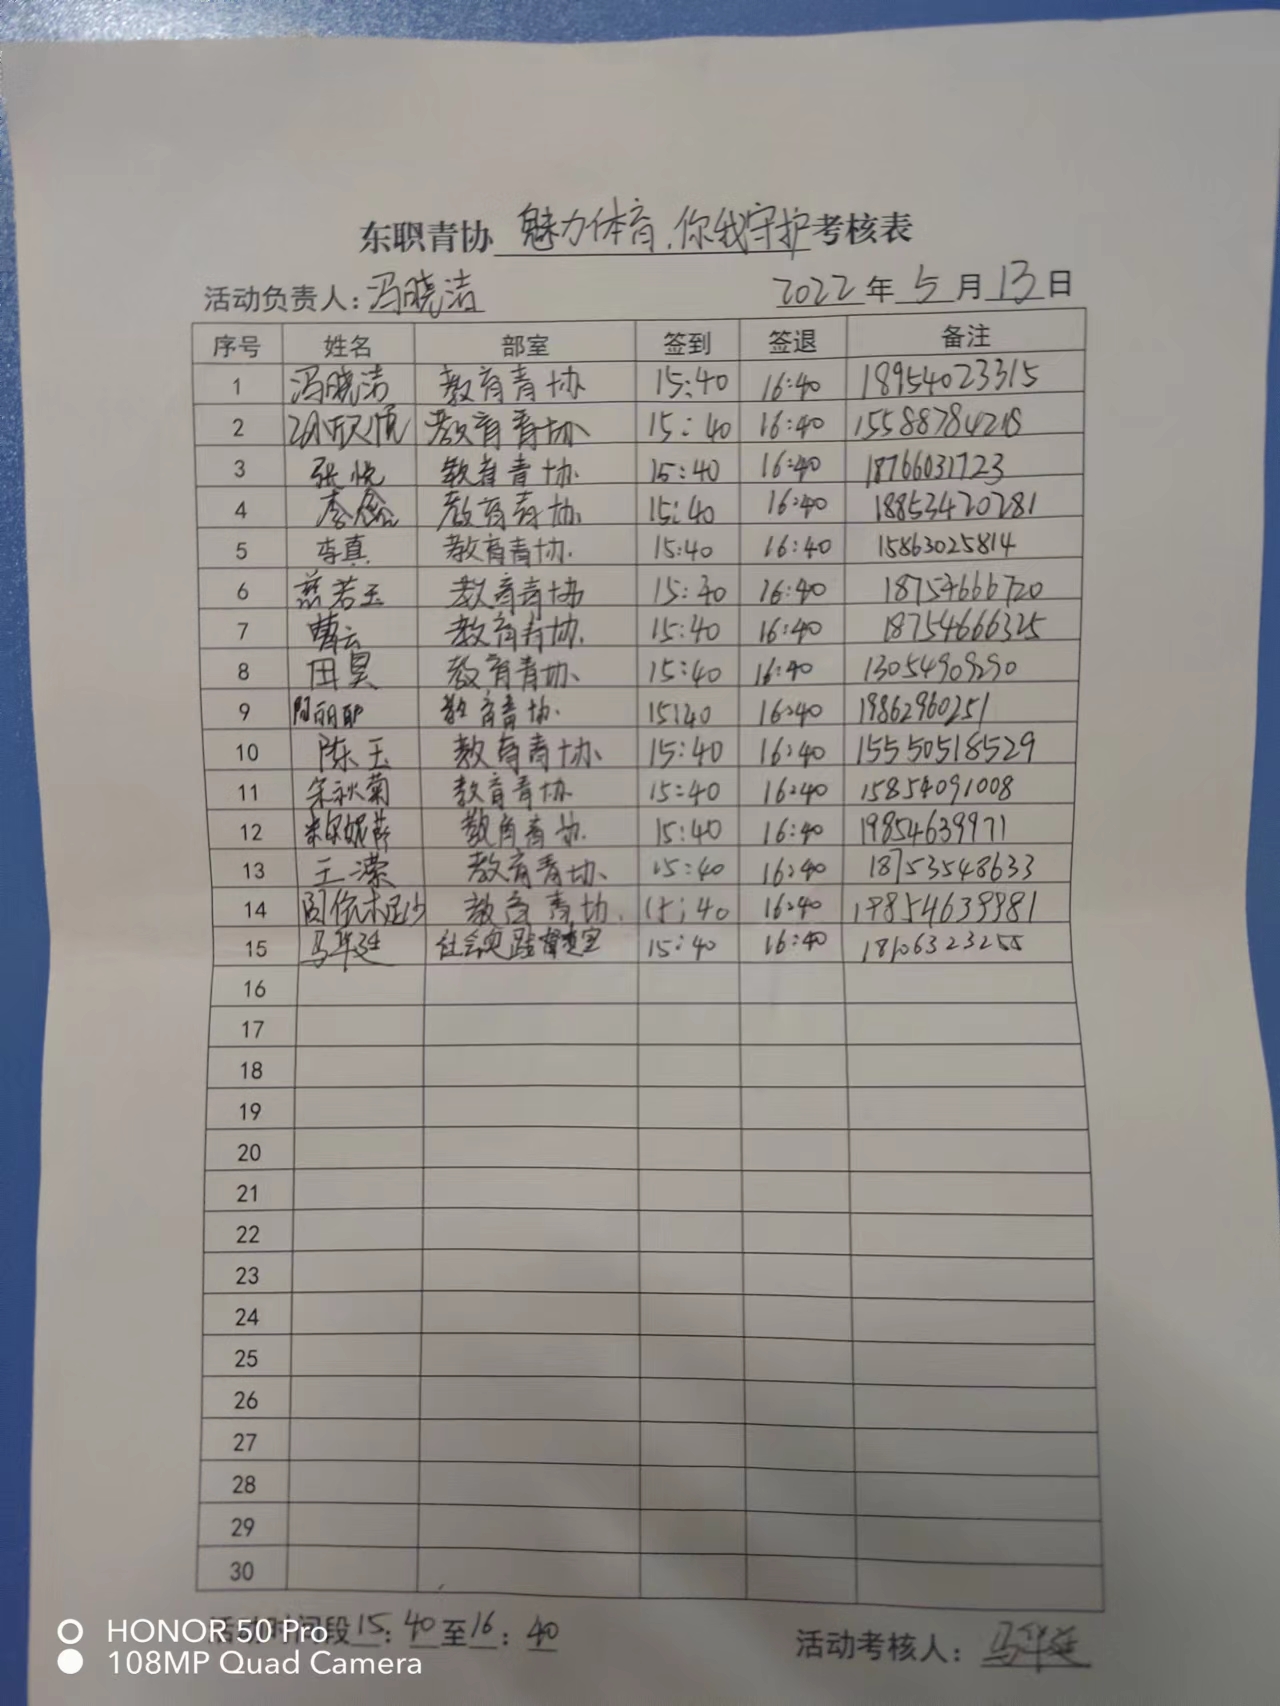 东职青协 魅力体育，你我守护 考核表
活动负责人：冯晓洁 2022年5月13日
序号 姓名 部室 签到 签退 备注
1 冯晓洁 教育青协 15:40 16:40 18954023315
2 教育青协 15:40 16:40 15588784218
3 张悦 教育青协 15:40 16:40 18766031723
4 教育青协 15:40 16:40 18853420281
5 李真 教育青协. 15:40 16:40 15863025814
6 慈若玉 教育青协 15:40 16:40 18754666720
7 曹云 教育青协. 15:40 16:40 18754666325
8 田昊 教育青协. 15:40 16:40
9 教育青协. 15:40 16:40 19862960251
10 陈玉 教育青协. 15:40 16:40 15550518529
11 宋秋菊 教育青协 15:40 16:40 15854091008
12 教育青协. 15:40 16:40 19854639971
13 王潆 教育青协. 15:40 16:40 18753548633
14 教育青协. 15:40 16:40 19854639981
15 马华廷 社会实践 15:40 16:40 18106323255
16
17
18
19
20
21
22
23
24
25
26
27
28
29
30
活动时间段15:40至16:40 活动考核人：马华廷
HONOR 50 Pro
108MP Quad Camera